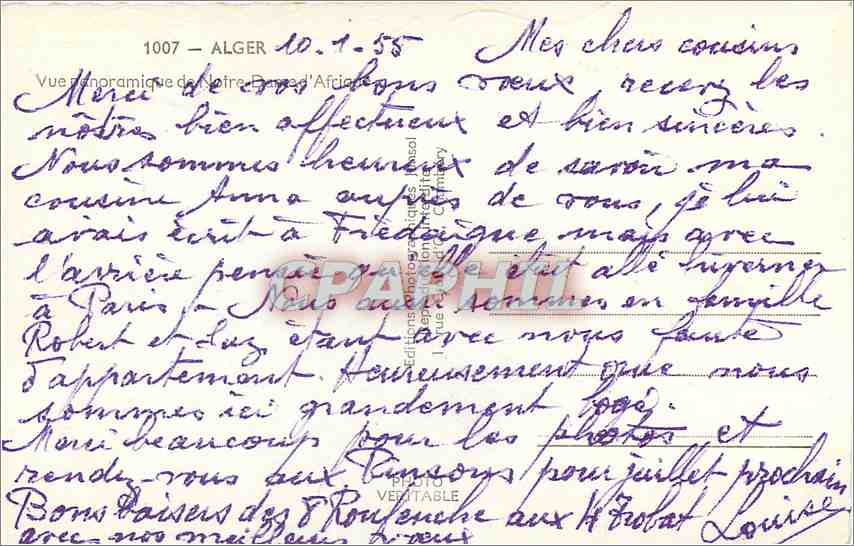 1007 — ALGER 10-1-55 Mes chers cousins
Vue panoramique de Notre-Dame d'Afrique
Merci de vos bons vœux, recevez les
nôtres bien affectueux et bien sincères.
Nous sommes heureux de savoir ma
cousine Anna auprès de vous, je lui
avais écrit à mais avec
l'arrière pensée qu'elle était allé hiverner
à Paris - Nous aussi sommes en famille
Robert et étant avec nous faute
d'appartement. Heureusement que nous
sommes ici grandement logé.
Merci beaucoup pour les photos et
rendez-vous aux Pinsons pour juillet prochain
Bons baisers des aux 4 Trobat Louise
avec nos meilleurs vœux
Editions Photographiques Jomsol
Reproduction Interdite
PHOTO
VÉRITABLE
CPAPHIL